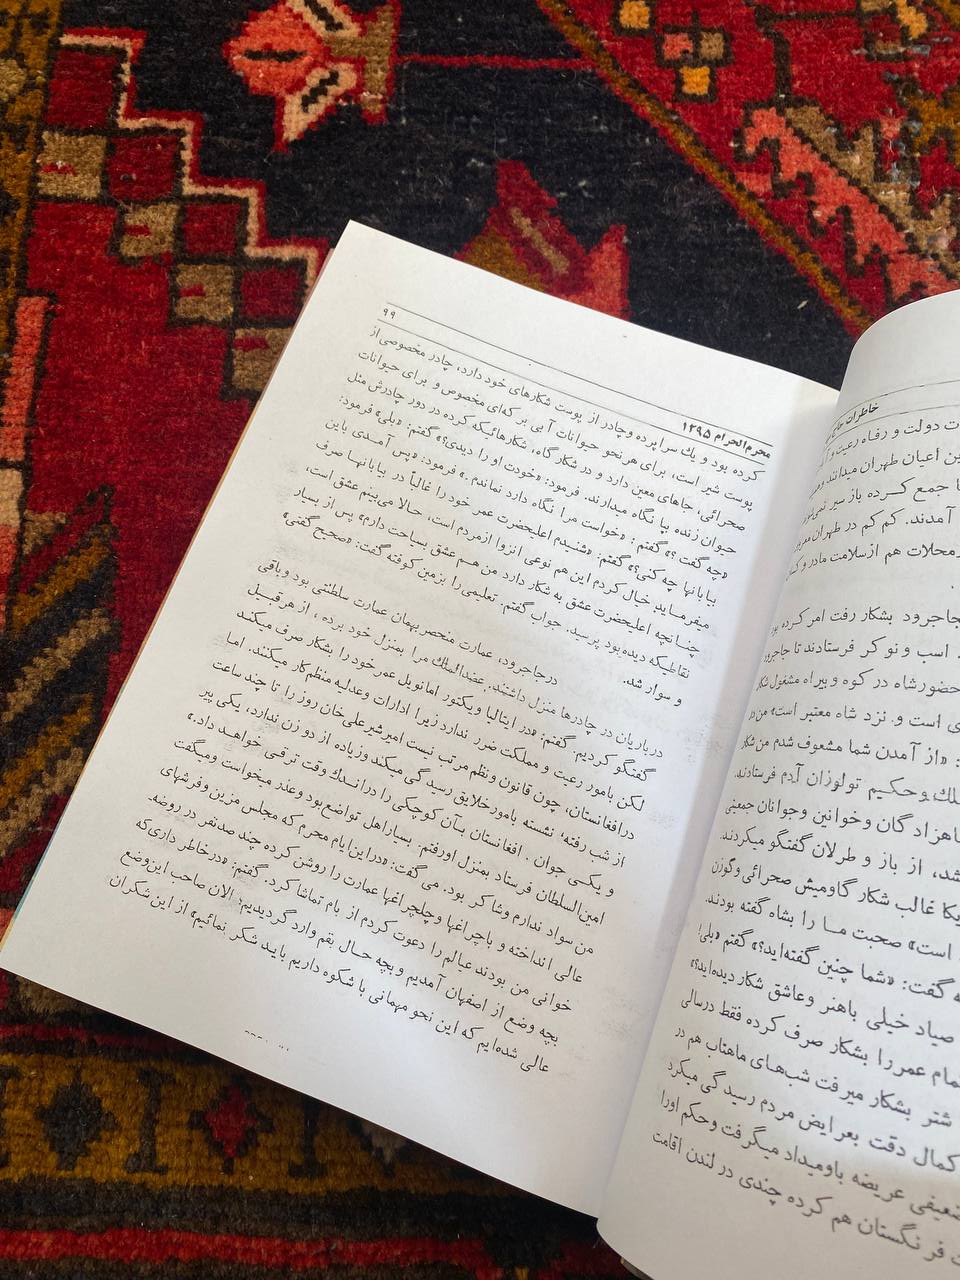 خاطرات حاج
ت دولت و رفاه رعیت و
ین اعیان طهران میدانند
ا جمع کرده باز سیر
آمدند. کم کم در طهران
محلات هم از سلامت مادر و
جاجرود بشکار رفت امر کرده بود
اسب و نوکر فرستادند تا جاجرود
حضور شاه در کوه و بیراه مشغول شکار
ی است و نزد شاه معتبر است» من در
: «از آمدن شما مشعوف شدم من شکار
لك، وحکیم تولوزان آدم فرستادند.
اهزادگان و خوانین و جوانان جمعی
شد، از باز و طرلان گفتگو میکردند
یکا غالب شکار گاومیش صحرائی و گوزن
است» صحبت ما را بشاه گفته بودند.
ه گفت: «شما چنین گفته‌اید؟» گفتم «بلی!
صیاد خیلی باهنر و عاشق شکار دیده‌اید؟»
تمام عمر را بشکار صرف کرده فقط درسالی
شتر بشکار میرفت شب‌های ماهتاب هم در
کمال دقت بعرایض مردم رسیدگی میکرد
ضعیفی عریضه باومیداد میگرفت و حکم اورا
ت فرنگستان هم کرده چندی در لندن اقامت
محرم الحرام ۱۲۹۵ ۹۹
کرده بود و یك سراپرده وچادر از پوست شکارهای خود دارد، چادر مخصوصی از
پوست شیر است، برای هر نحو حیوانات آبی برکه‌ای مخصوص و برای حیوانات
صحرائی، جاهای معین دارد و در شکارگاه، شکارهائیکه کرده در دور چادرش مثل
حیوان زنده بپا نگاه میدارند. فرمود: «خودت او را دیدی؟» گفتم: «بلی» فرمود:
«چه گفت؟» گفتم: «خواست مرا نگاه دارد نماندم.» فرمود: «پس آمدی باین
بیابانها چه کنی؟» گفتم: «شنیدم اعلیحضرت عمر خود را غالباً در بیابانها صرف
میفرماید. خیال کردم این هم نوعی انزوا ازمردم است، حالا می‌بینم عشق است،
چنانچه اعلیحضرت عشق به شکار دارد من هم عشق بسیاحت دارم» پس از بسیار
نقاطیکه دیده بود پرسید. جواب گفتم. تعلیمی را بزمین کوفته گفت: «صحیح گفتی»
و سوار شد.
درجاجرود، عمارت منحصر بهمان عمارت سلطنتی بود و باقی
درباریان در چادرها منزل داشتند. عضدالملك مرا بمنزل خود برده ، از هر قبیل
گفتگو کردیم. گفتم: «در ایتالیا ویکتور امانویل عمر خود را بشکار صرف میکنند
لکن بامور رعیت و مملکت ضرر ندارد زیرا ادارات وعدلیه منظم کار میکنند. اما
درافغانستان، چون قانون ونظم مرتب نیست امیر شیرعلی‌خان روز را تا چند ساعت
از شب رفته، نشسته بامور خلایق رسیدگی میکند وزیاده از دو زن ندارد، یکی پیر
و یکی جوان . افغانستان بآن کوچکی را دراندك وقت ترقی خواهد داد.»
امین‌السلطان فرستاد بمنزل اورفتم. بسیار اهل تواضع بود وعذر میخواست ومیگفت
من سواد ندارم وشاکر بود. می‌گفت: «دراین ایام محرم که مجلس مزین وفرشهای
عالی انداخته و باچراغها وچلچراغها عمارت را روشن کرده چند صد نفر در روضه‌
خوانی من بودند عیالم را دعوت کردم از بام تماشا کرد. گفتم: «درخاطر داری که
بچه وضع از اصفهان آمدیم و بچه حال بقم وارد گردیدیم؛ الان صاحب این وضع
عالی شده‌ایم که این نحو مهمانی با شکوه داریم باید شکر بنمائیم» از این شکران